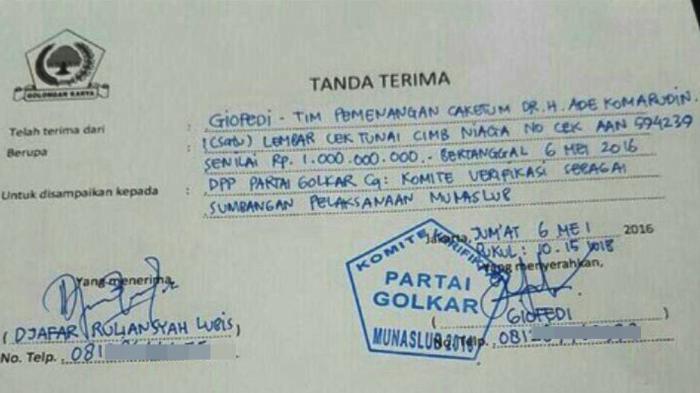 GOLONGAN KARYA
TANDA TERIMA
Telah terima dari : GIOFEDI - TIM PEMENANGAN CAKETUM DR. H. ADE KOMARUDIN.
Berupa : 1 (satu) LEMBAR CEK TUNAI CIMB NIAGA NO CEK AAN 594239
SENILAI Rp. 1.000.000.000.- BERTANGGAL 6 MEI 2016
Untuk disampaikan kepada : DPP PARTAI GOLKAR Cq: KOMITE VERIFIKASI SEBAGAI
SUMBANGAN PELAKSANAAN MUNASLUB
Jakarta, JUM'AT 6 MEI 2016
PUKUL : 10.15
Yang menerima, Yang menyerahkan,
KOMITE VERIFIKASI
PARTAI
GOLKAR
MUNASLUB 2016
( DJAFAR RULIANSYAH LUBIS ) ( GIOFEDI )
No. Telp. : 081 No. Telp. : 081